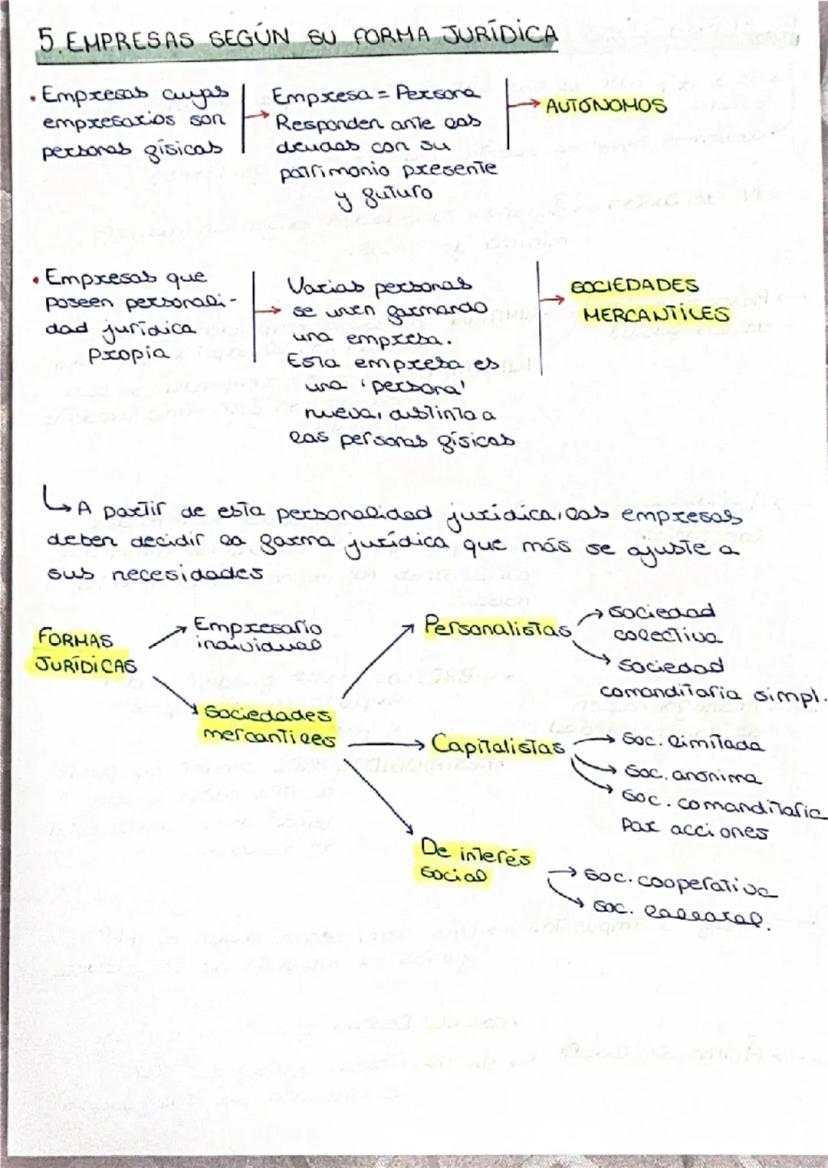 5. EMPRESAS SEGÚN SU FORMA JURÍDICA
• Empresas cuyos
empresarios son
personas físicas
Empresa = Persona
Responden ante las
deudas con su
patrimonio presente
y futuro
AUTÓNOMOS
• Empresas que
poseen personali-
dad jurídica
propia
Varias personas
se unen formando
una empresa.
Esta empresa es
una 'persona'
nueva, distinta a
las personas físicas
SOCIEDADES
MERCANTILES
A partir de esta personalidad jurídica, las empresas
deben decidir la forma jurídica que más se ajuste a
sus necesidades
FORMAS
JURÍDICAS
Empresario
individual
Sociedades
mercantiles
Personalistas
Sociedad
colectiva
Sociedad
comanditaria simpl.
Capitalistas
Soc. limitada
Soc. anónima
Soc. comanditaria
por acciones
De interés
social
Soc. cooperativa
Soc. laboral.